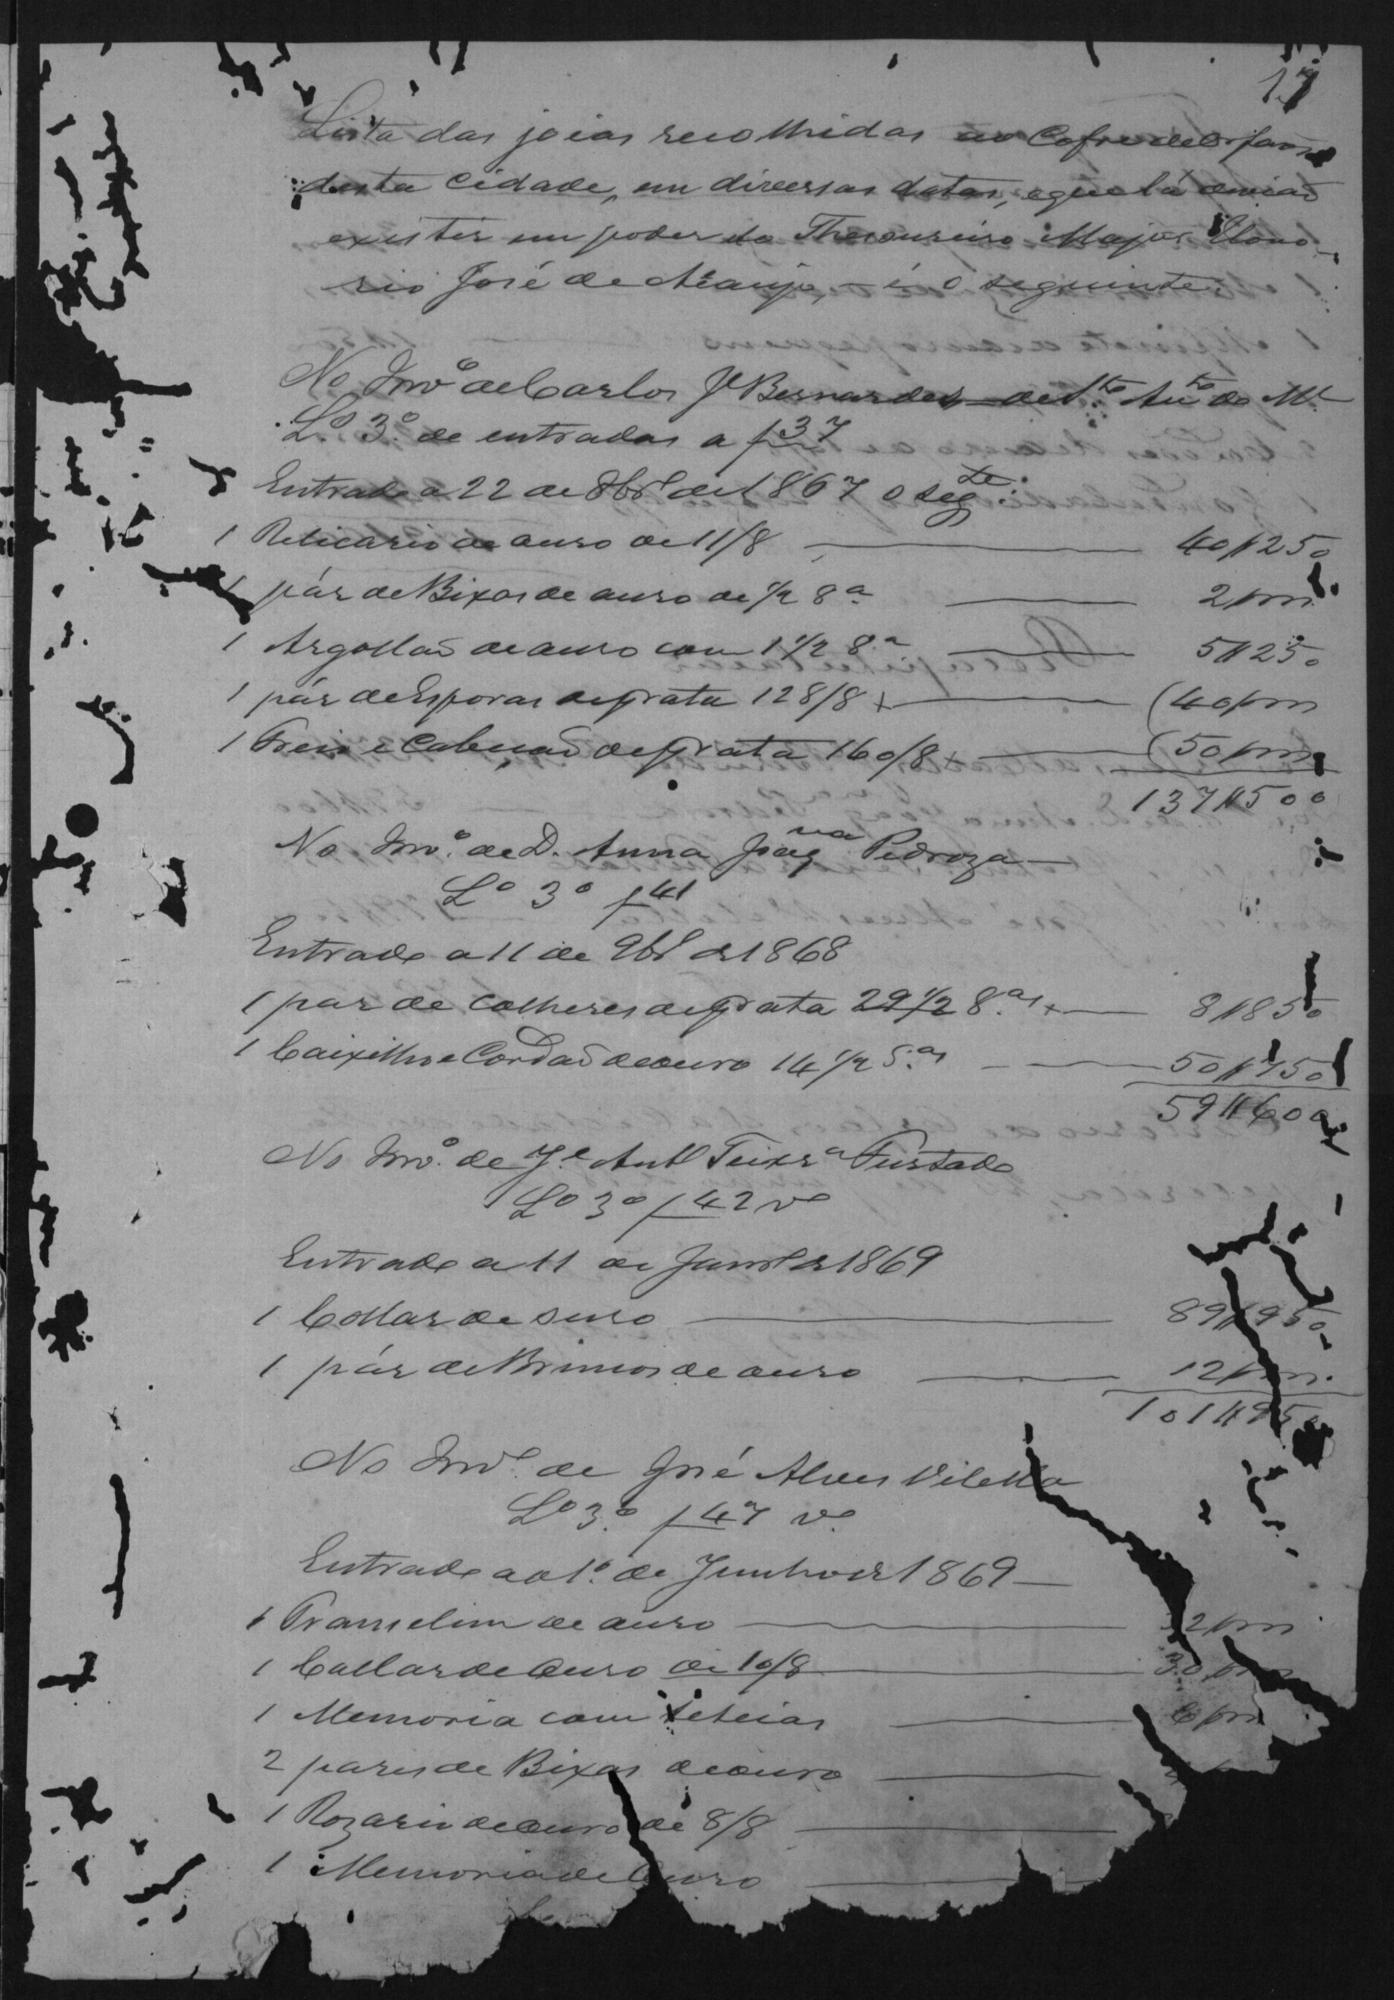 17
Lista das joias recolhidas ao Cofre de Orfaos
desta Cidade, em diversas datas, e que lá devião
existir em poder do Thesoureiro Major Hono-
rio José de Araujo, - é o seguinte:
No Invº de Carlos Jº Bernardes de
Lº 3º de entradas a f 37
Entrado a 22 de 8brº de 1867 o segte:
1 Relicario de ouro de 11/8 40$250
1 pár de Bixas de ouro de 1/2 8ª 2$000
1 Argollaõ de ouro com 1 1/2 8ª 5$250
1 pár de Esporas de prata 128/8 + (40$000
1 Freio e Cabeçaõ de prata 160/8 + (50$000
137$500
No Invº de D. Anna Joaqna Pedroza
Lº 3º f 41
Entrado a 11 de 9brº de 1868
1 par de colheres de prata 29 1/2 8.as + 8$850
1 Caixilho e Cordaõ de ouro 14 1/2 8.as 50$750
59$600
No Invº de Jº Antº Teixrª Furtado
Lº 3º f 42 vº
Entrado a 11 de Janrº de 1869
1 Collar de ouro 89$950
1 pár de Brincos de ouro 12$000
101$950
No Invº de José Alves Vilella
Lº 3º f 47 vº
Entrado ao 1º de Junho de 1869
1 Trancelim de ouro 2$000
1 Collar de Ouro de 10/8 30$000
1 Memoria com teteias 6$000
2 pares de Bixas de ouro
1 Rozario de ouro de 8/8
1 Memoria de Ouro